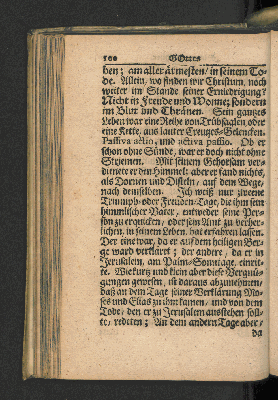 100 GOttes
ben; am aller ärmesten/ in seinem To-
de. Allein, wo finden wir Christum, noch
weiter im Stande seiner Erniedrigung?
Nicht in Freude und Wonne; sondern
im Blut und Thränen. Sein gantzes
Leben war eine Reihe von Trübsalen, oder
eine Kette, aus lauter Creutzes-Gelencken.
Passiva actio, und activa passio. Ob er
schon ohne Sünde, war er doch nicht ohne
Striemen. Mit seinem Gehorsam ver-
dienete er den Himmel: aber er fand nichts,
als Dornen und Disteln, auf dem Wege,
nach demselben. Ich weiß nur zweene
Triumph- oder Freuden-Tage, die ihm sein
himmlischer Vater, entweder seine Per-
son zu erquicken, oder sein Amt zu verherr-
lichen, in seinem Leben, hat erfahren lassen.
Der eine war, da er auf dem heiligen Ber-
ge ward verklärt; der andere, da er in
Jerusalem, am Palm-Sonntage, einrit-
te. Wie kurtz und klein aber diese Vergnü-
gungen gewesen, ist daraus abzunehmen,
daß an dem Tage seiner Verklärung Mo-
ses und Elias zu ihm kamen, und von dem
Tode, den er zu Jerusalem ausstehen soll-
te, redeten; An dem andern Tage aber,
da